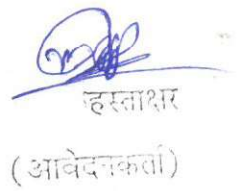 हस्ताक्षर
(आवेदनकर्ता)